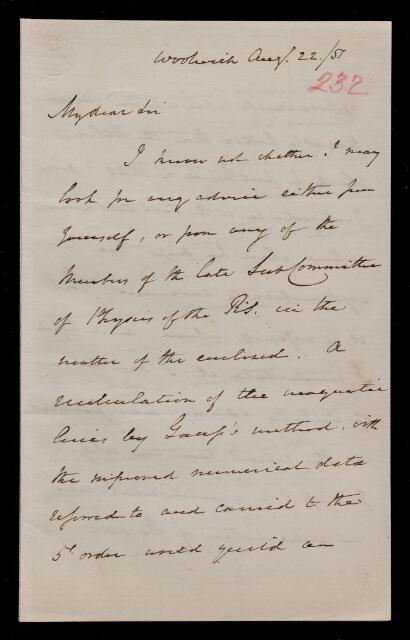 Woolwich Augt. 22./51
232
My dear Sir
I know not whether I may
look for any advice either from
yourself, or from any of the
Members of the late Sub Committee
of Physics of the R.S. in the
matter of the enclosed. A
recalculation of the magnetic
lines by Gauss's method, with
the improved numerical data
referred to and carried to the
5th order would yield an